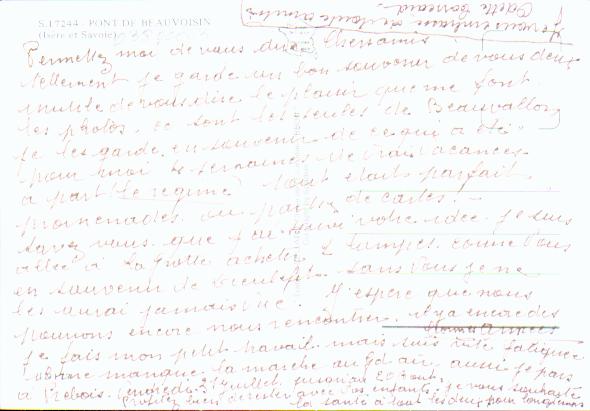 S.17244 - PONT DE BEAUVOISIN
(Isère et Savoie)
Permettez moi de vous dire Chers amis
tellement je garde un bon souvenir de vous deux
inutile de vous dire le plaisir que me font
les photos. ce sont les seules de Beauvallon
je les garde en souvenir de ce qui a été
pour moi semaines de vrais vacances
a part le regime tout etait parfait
promenades ou parties de cartes. -
Savez vous que j'ai suivi votre idée. je suis
allée à la grotte acheter 2 lampes comme vous
en souvenir de sans vous je ne
les aurai jamais vue. J'espère que nous
pouvons encore nous rencontrer. il y a encore des
je fais mon petit travail mais suis vite fatiguée
manque la marche au gd air aussi je pars
à Vendredi 21 juillet jusqu'au 20 aout.
Profitez bien de rester avec vos enfants, je vous souhaite
la santé à tout les deux pour longtemps
je vous embrasse de toute